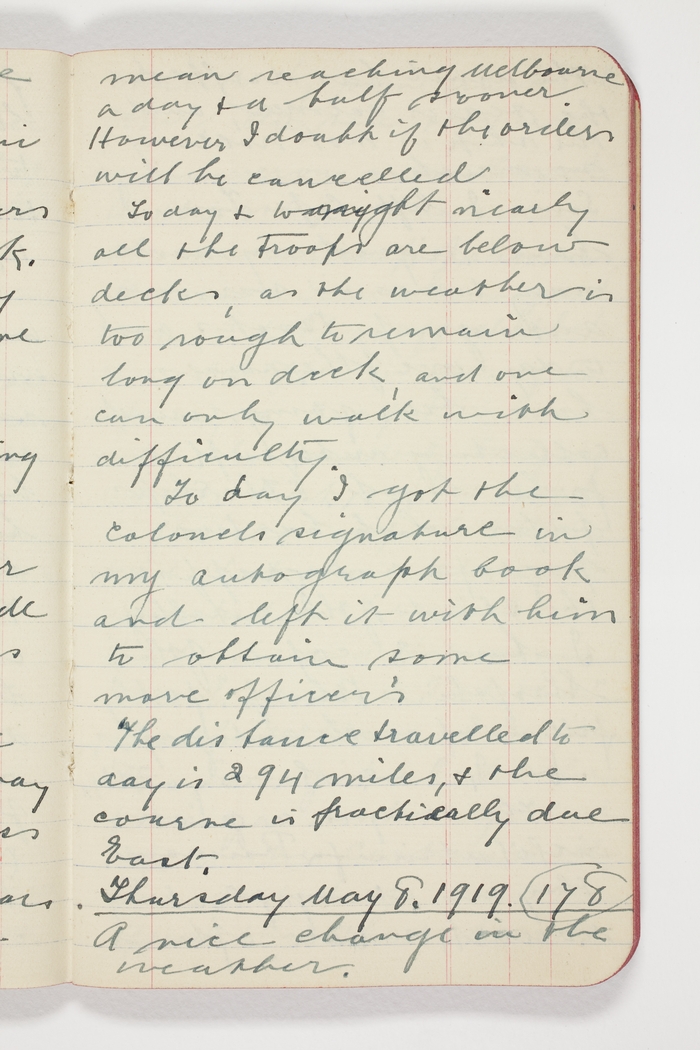 mean reaching Melbourne
a day & a half sooner.
However I doubt if the orders
will be cancelled
To day & to night nearly
all the Troops are below
decks, as the weather is
too rough to remain
long on deck, and one
can only walk with
difficulty.
To day I got the
Colonels signature in
my autograph book
and left it with him
to obtain some
more officer's
The distance travelled to
day is 294 miles, & the
course is practically due
East.
Thursday May 8. 1919. 178
A nice change in the
weather.